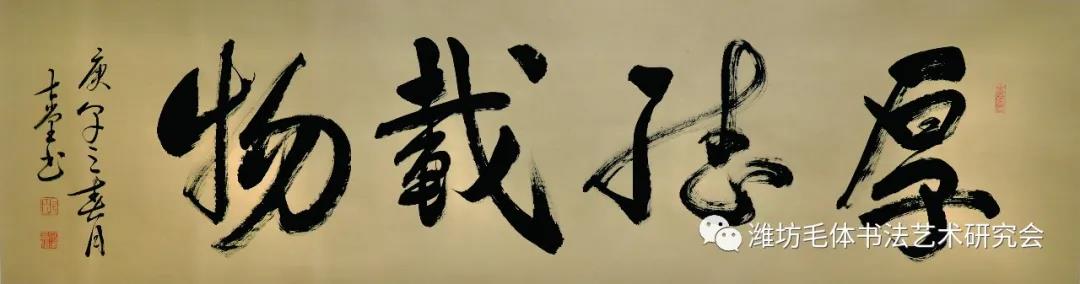 厚德載物
庚子之春月
书
潍坊毛体书法艺术研究会